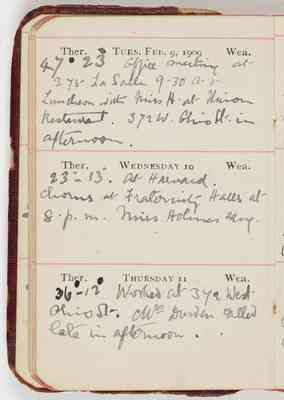 Ther. TUES. FEB. 9, 1909 Wea.
47° 23 Office meeting at
378 La Salle 9.30 a.m.
Luncheon with Miss H. at Union
Restaurant. 372 W. Ohio St. in
afternoon.
Ther. WEDNESDAY 10 Wea.
23°-13°. At Harvard.
Chorus at Fraternity Halls at
8. p.m. Miss Holmes
Ther. THURSDAY 11 Wea.
36°-12° Worked at 372 West
Ohio St. called
late in afternoon.